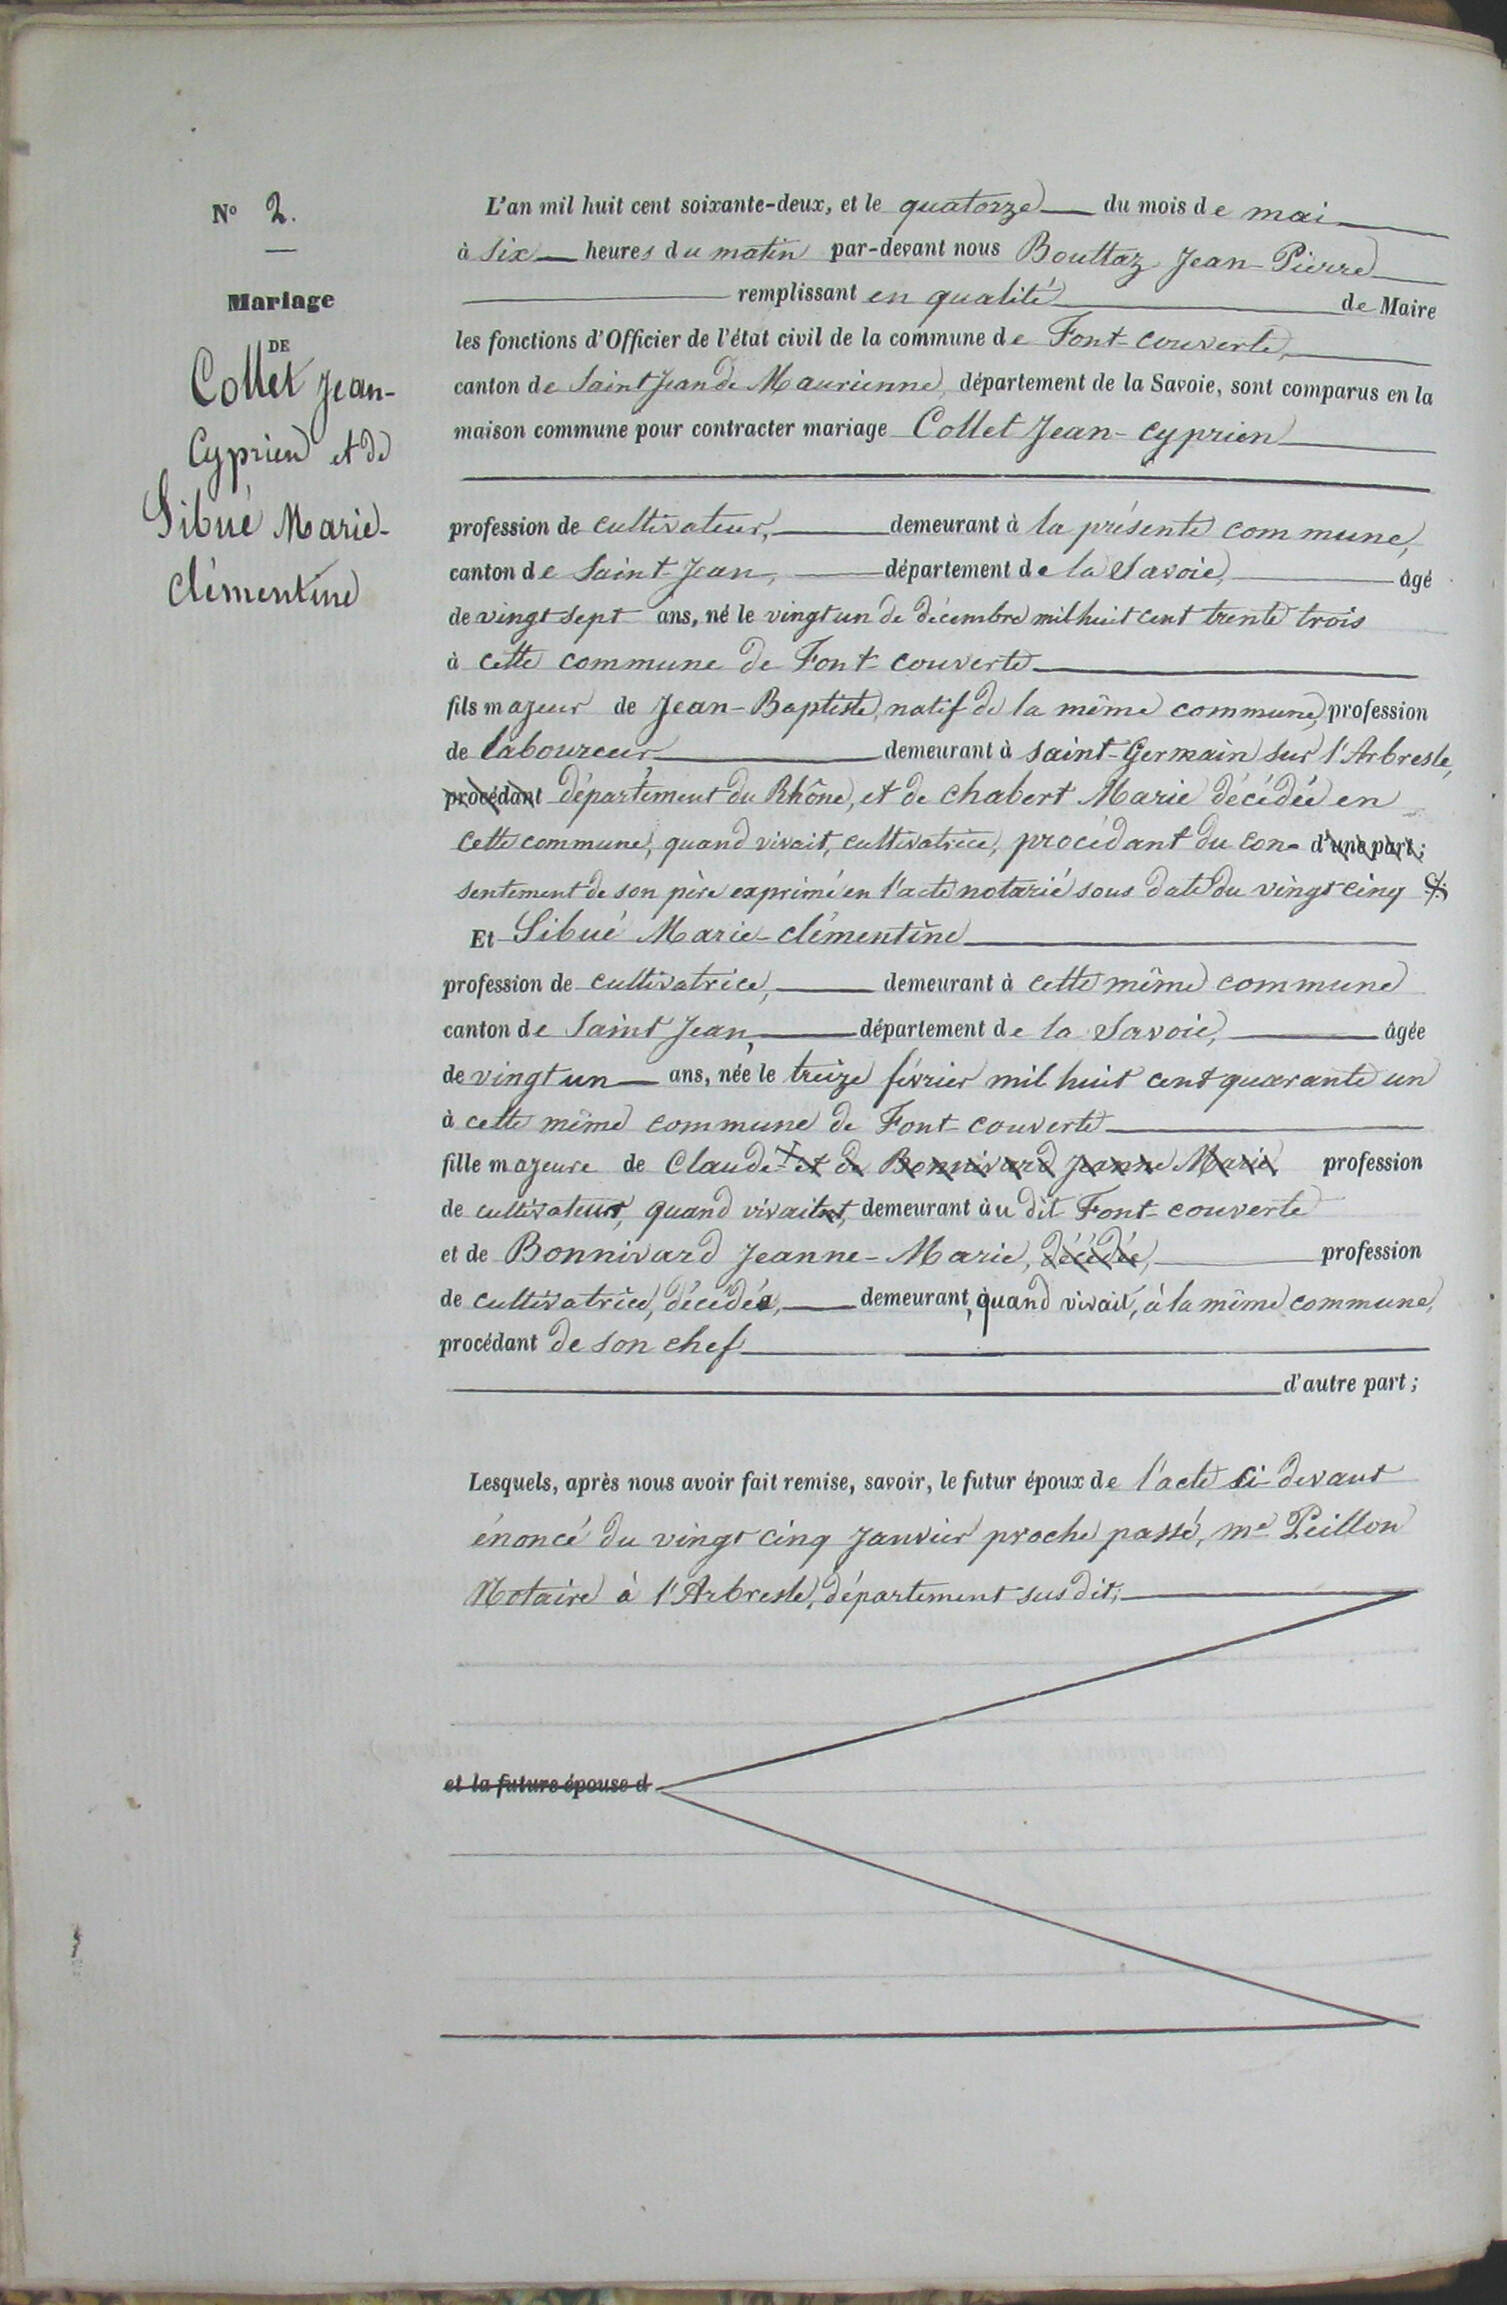 N° 2.
Mariage
DE
Collet Jean-
Cyprien et de
Sibué Marie-
Clémentine
L'an mil huit cent soixante-deux, et le quatorze du mois de mai
à six heures du matin par-devant nous Bouttaz Jean-Pierre
remplissant en qualité de Maire
les fonctions d'Officier de l'état civil de la commune de Font-couverte,
canton de Saint Jean de Maurienne, département de la Savoie, sont comparus en la
maison commune pour contracter mariage Collet Jean-Cyprien
profession de cultivateur, demeurant à la présente commune,
canton de Saint-Jean, département de la Savoie, âgé
de vingt sept ans, né le vingt un de décembre mil huit cent trente trois
à cette commune de Font-couverte
fils majeur de Jean-Baptiste, natif de la même commune, profession
de laboureur, demeurant à Saint-Germain sur l'Arbresle,
procédant département du Rhône, et de Chabert Marie décédée en
cette commune, quand vivait, cultivatrice, procédant du con- d'une part;
sentement de son père exprimé en l'acte notarié sous date du vingt cinq
Et Sibué Marie-Clémentine
profession de cultivatrice, demeurant à cette même commune
canton de Saint Jean, département de la Savoie, âgée
de vingt un ans, née le treize février mil huit cent quarante un
à cette même commune de Font-couverte
fille majeure de Claude et de Bonnivard Jeanne Marie profession
de cultivateur, quand vivait, demeurant au dit Font-couverte
et de Bonnivard Jeanne-Marie, décédée, profession
de cultivatrice, décédée, demeurant, quand vivait, à la même commune,
procédant de son chef
d'autre part;
Lesquels, après nous avoir fait remise, savoir, le futur époux de l'acte ci-devant
énoncé du vingt cinq Janvier proche passé, me Peillon
Notaire à l'Arbresle, département sus dit;
et la future épouse d